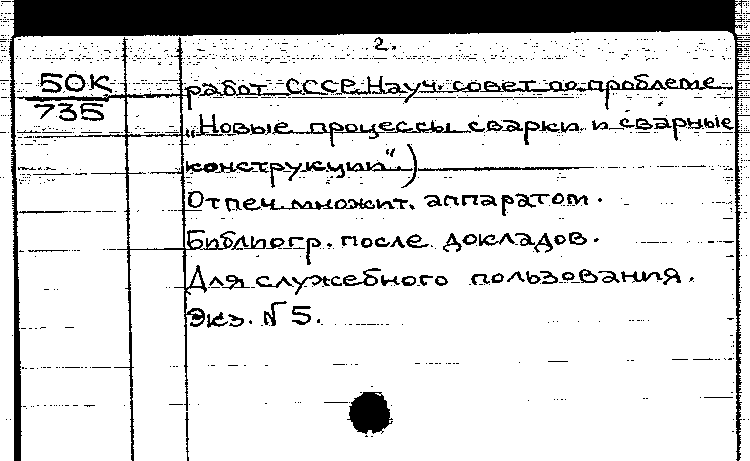 2.
50К
735
работ СССР. Науч. совет по проблеме
„Новые процессы сварки и сварные
конструкции“.)
Отпеч. множит. аппаратом.
Библиогр. после докладов.
Для служебного пользования.
Экз. № 5.